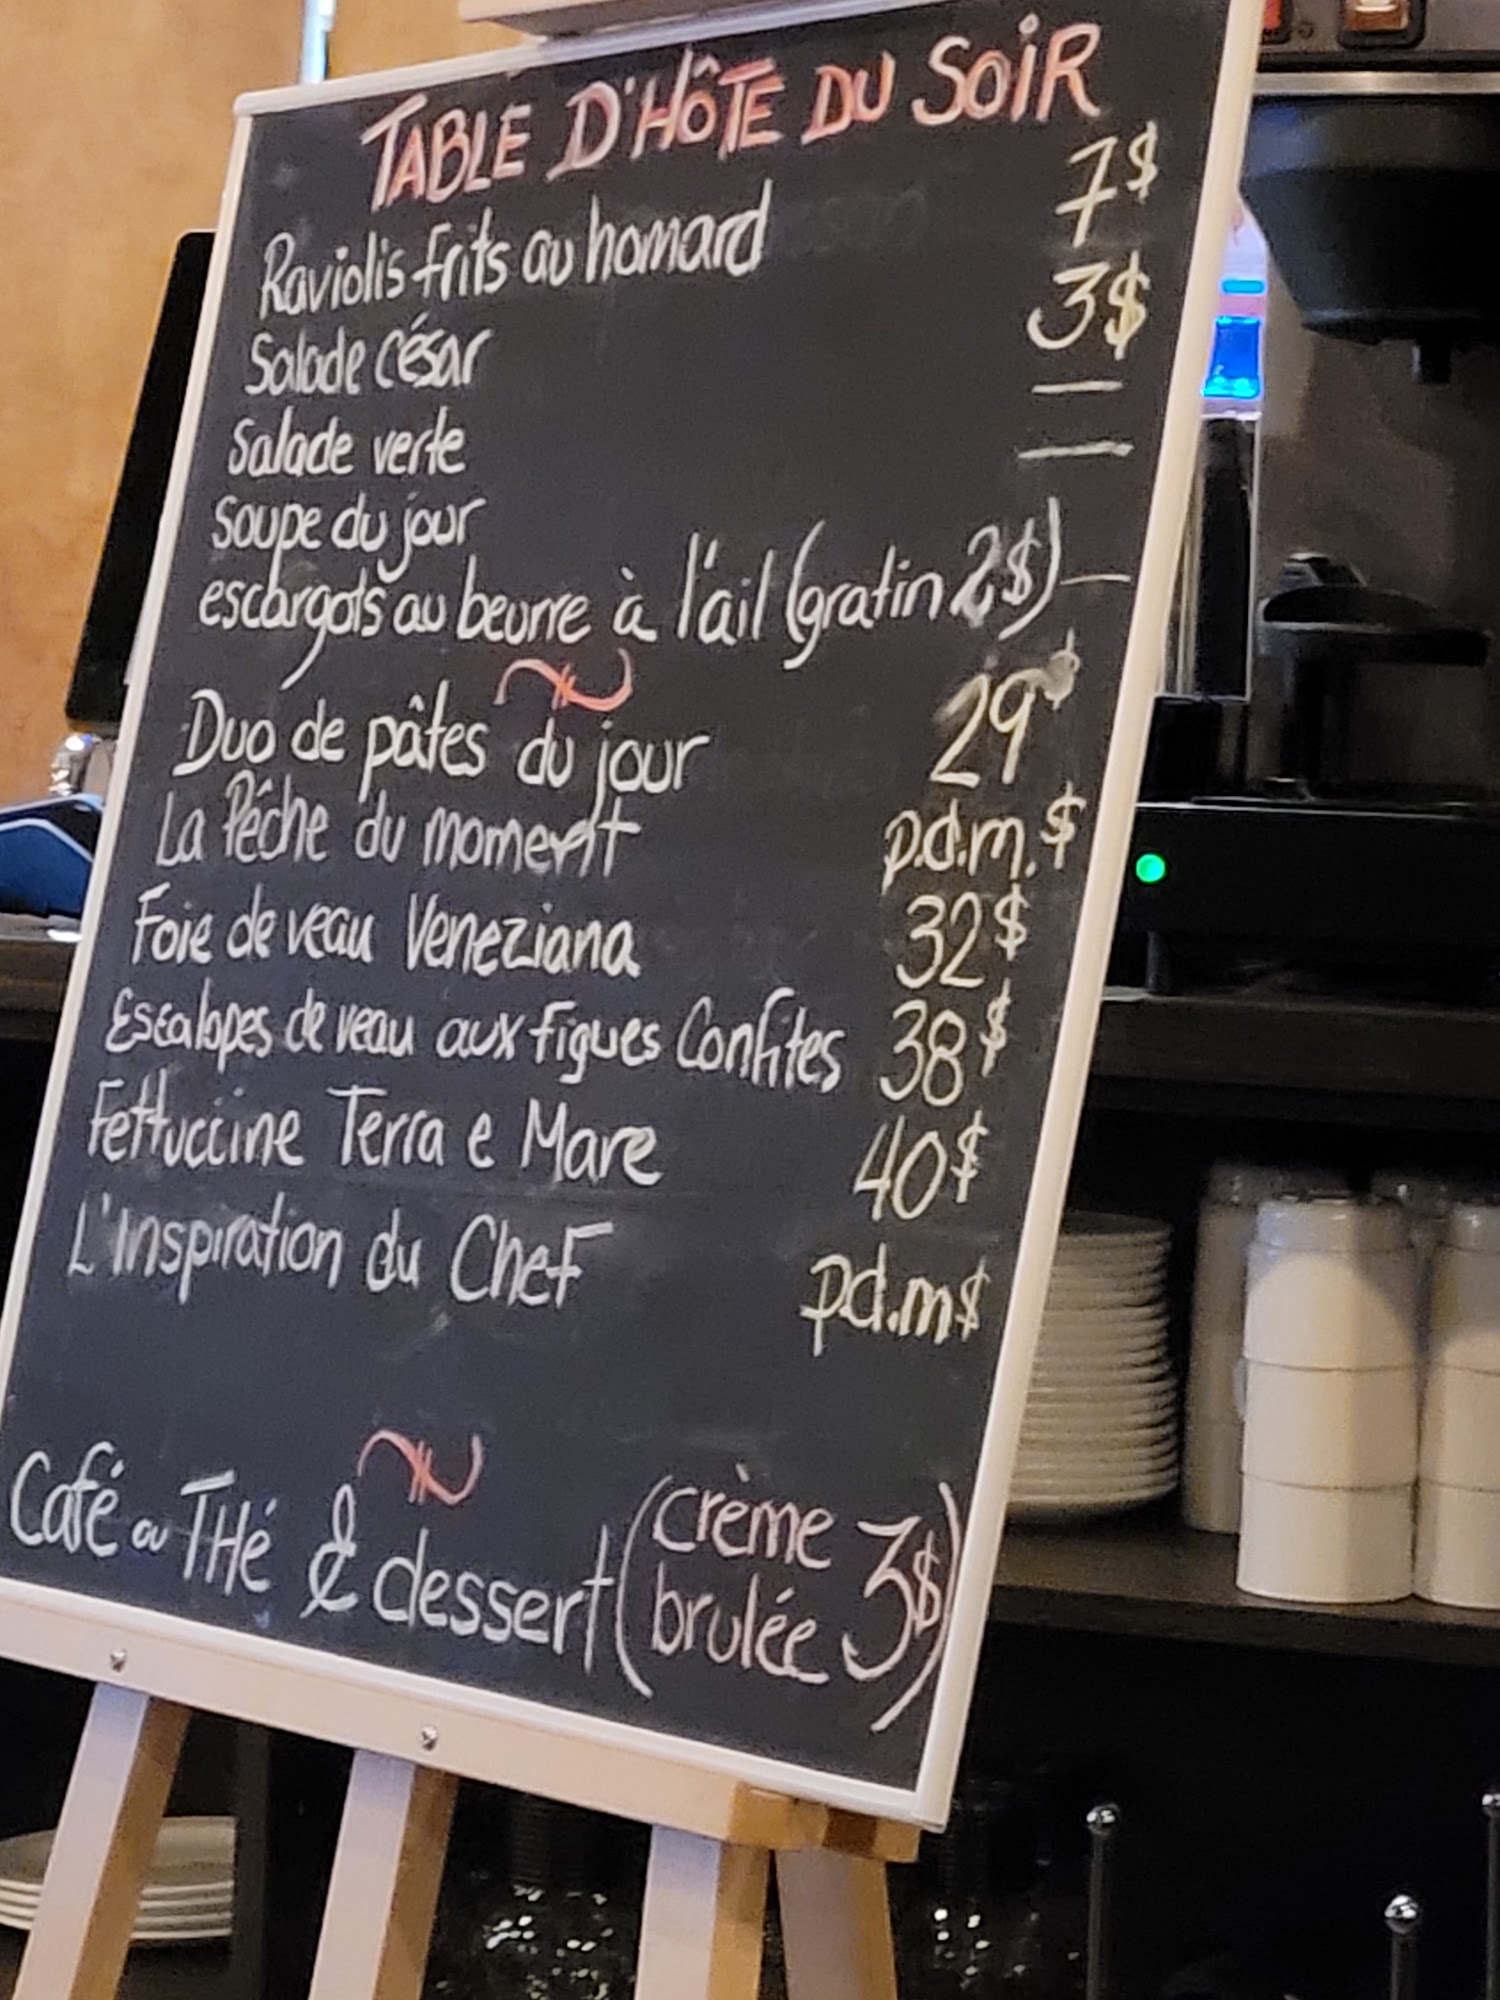 TABLE D'HÔTE DU SOIR
Raviolis frits au homard 7$
Salade césar 3$
Salade verte —
Soupe du jour —
escargots au beurre à l'ail (gratin 2$) —
Duo de pâtes du jour 29$
La Pêche du moment p.d.m.$
Foie de veau Veneziana 32$
Escalopes de veau aux figues Confites 38$
Fettuccine Terra e Mare 40$
L'inspiration du Chef p.d.m$
Café ou THé & dessert (crème brulée 3$)